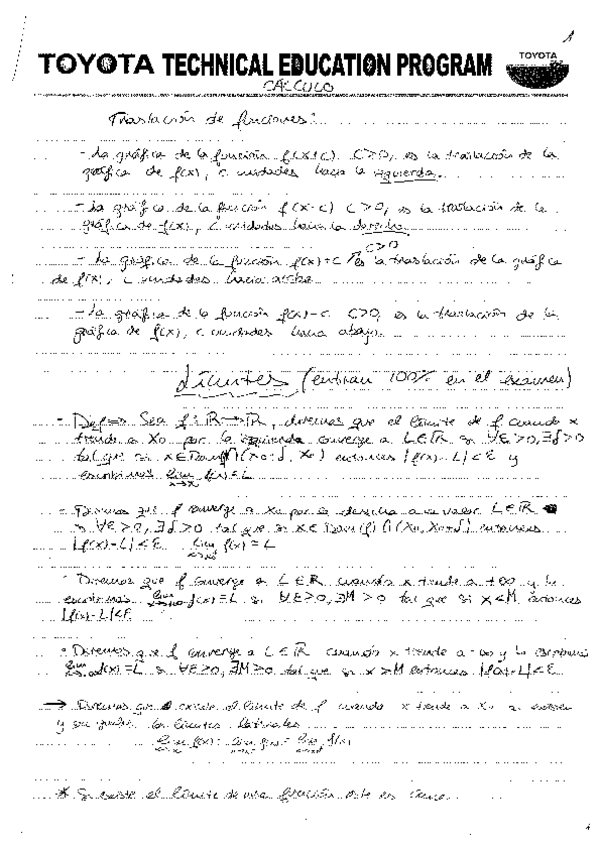 1
TOYOTA TECHNICAL EDUCATION PROGRAM
TOYOTA
CALCULO
Traslación de funciones:
- La gráfica de la función f(x+c) C>0, es la traslación de la
gráfica de f(x), c unidades hacia la izquierda.
- La gráfica de la función f(x-c) C>0, es la traslación de la
gráfica de f(x), c unidades hacia la derecha.
C>0
- La gráfica de la función f(x)+c es la traslación de la gráfica
de f(x), c unidades hacia arriba
- La gráfica de la función f(x)-c C>0, es la traslación de la
gráfica de f(x), c unidades hacia abajo.
Límites (entran 100% en el examen)
- Def => Sea f: R→R, diremos que el límite de f cuando x
tiende a x₀ por la izquierda converge a L∈R si ∀ε>0, ∃δ>0
tal que si x∈Dom(f)∩(x₀-δ, x₀) entonces |f(x)-L|<ε y
escribimos lim f(x)=L
- Diremos que f converge a x₀ por la derecha a un valor L∈R
si ∀ε>0, ∃δ>0 tal que si x∈Dom(f)∩(x₀, x₀+δ) entonces
|f(x)-L|<ε lim f(x)=L
- Diremos que f converge a L∈R cuando x tiende a +∞ y lo
escribimos lim f(x)=L si ∀ε>0, ∃M>0 tal que si x<M entonces
|f(x)-L|<ε
- Diremos que f converge a L∈R cuando x tiende a -∞ y lo escribimos
lim f(x)=L si ∀ε>0, ∃M>0 tal que si x>M entonces |f(x)-L|<ε
→ Diremos que existe el límite de f cuando x tiende a x₀ si existen
y son iguales los límites laterales
lim f(x)= lim f(x)= lim f(x)
* Si existe el límite de una función este es único.